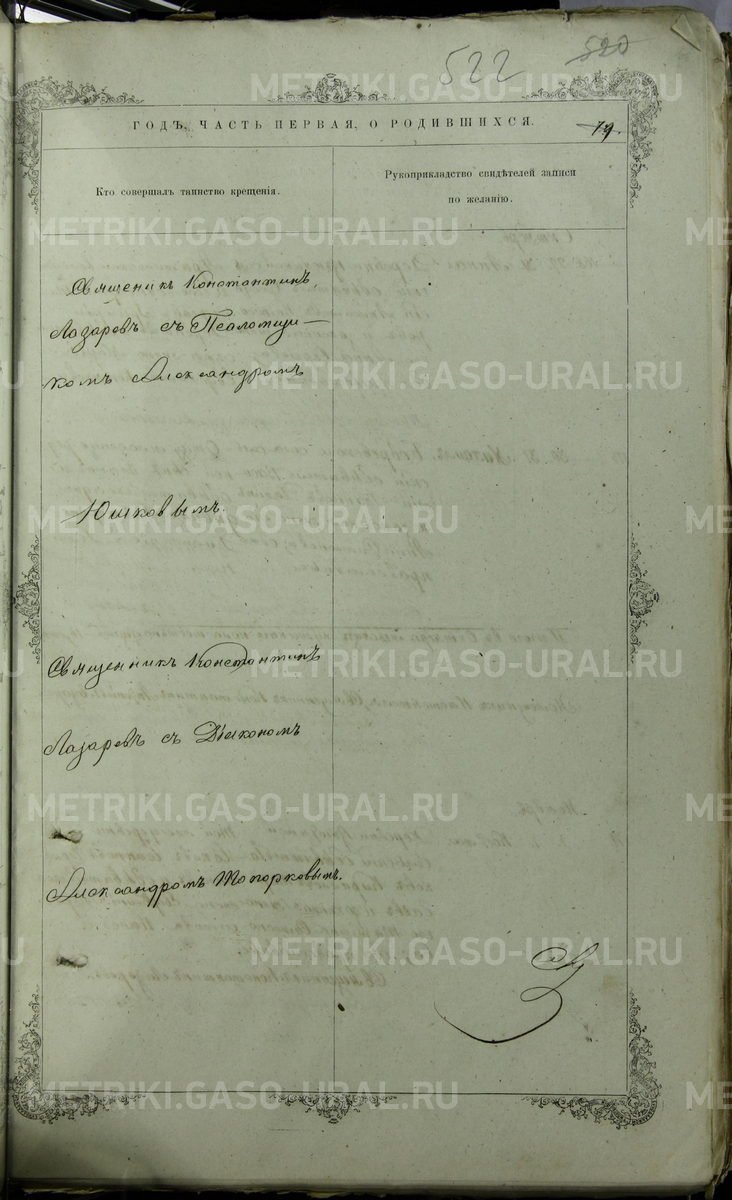 522 520
ГОДЪ, ЧАСТЬ ПЕРВАЯ, О РОДИВШИХСЯ.
19.
Кто совершалъ таинство крещенія.
Рукоприкладство свидѣтелей записи
по желанію.
Священикъ Константинъ
Лазаревъ съ Псаломщи-
комъ Александромъ
Юшковымъ.
Священникъ Константинъ
Лазаревъ съ Діякономъ
Александромъ Топорковымъ.
METRIKI.GASO-URAL.RU